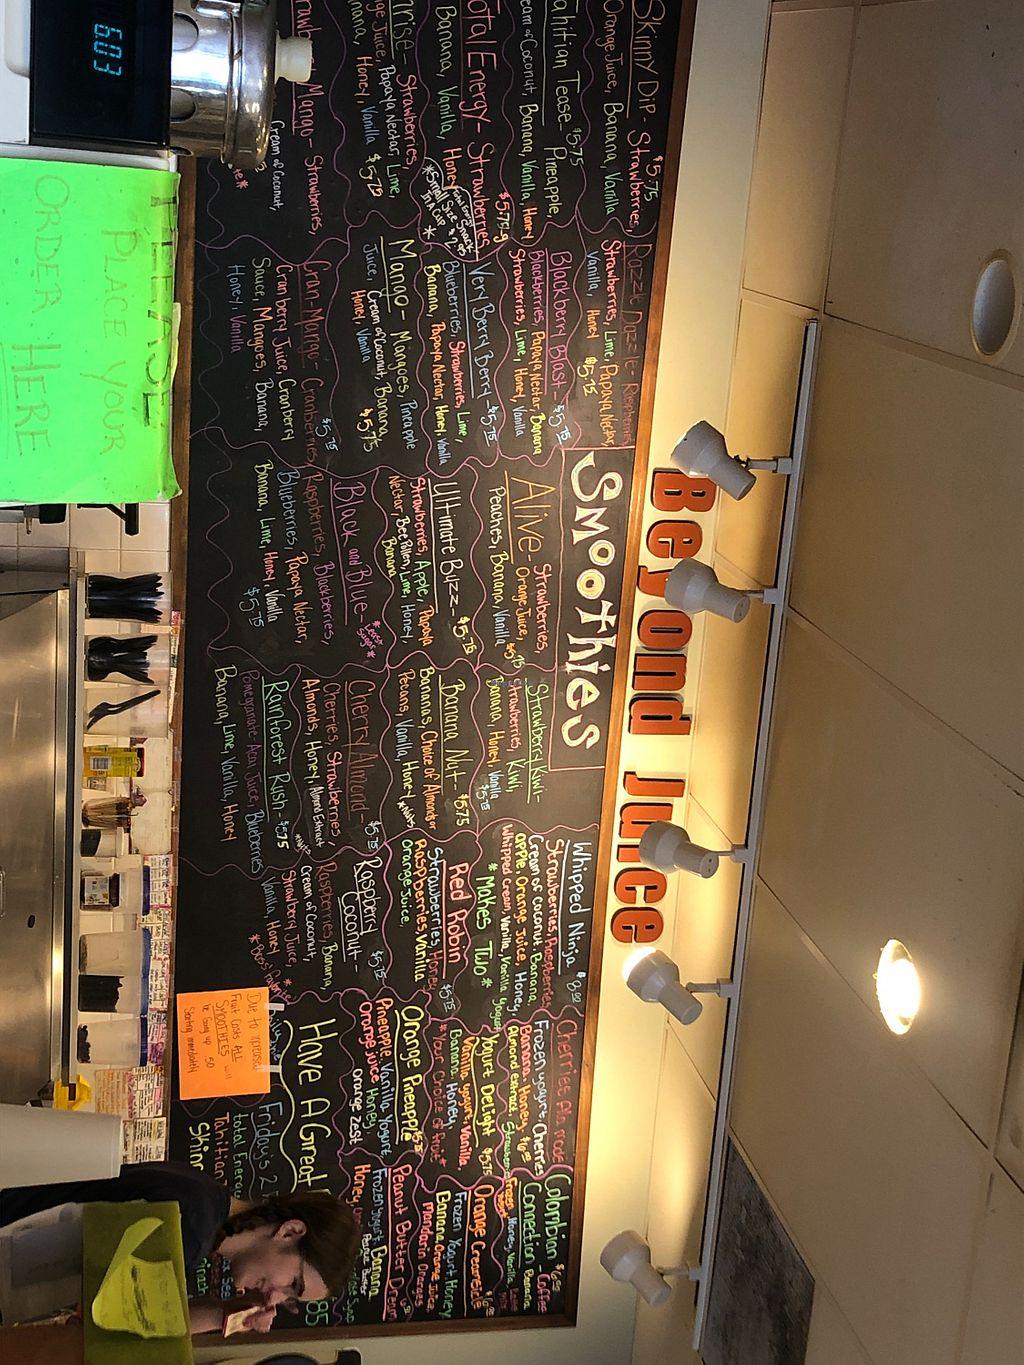 Beyond Juice
SMOOTHIES
SKINNY DIP- $5.75
Strawberries,
Orange Juice, Banana, Vanilla
Tahitian Tease- $5.75
Pineapple,
Cream of Coconut, Banana, Vanilla, Honey
Total Energy- Strawberries $5.75
Banana, Vanilla, Honey
Total Energy Snack
Size $2.95
*Small
In A Cup *
Strawberries,
Orange Juice, Papaya Nectar, Lime,
Banana, Honey, Vanilla $5.75
Mango- Strawberries,
Cream of Coconut,
Razzle Dazzle- Raspberries,
Strawberries, Lime, Papaya Nectar,
Vanilla, Honey $5.75
Blackberry Blast- $5.75
Blackberries, Papaya Nectar, Banana
Strawberries, Lime, Honey, Vanilla
Very Berry Berry- $5.75
Blueberries, Strawberries, Lime,
Banana, Papaya Nectar, Honey, Vanilla
Mango- Mangoes, Pineapple
Juice, Cream of Coconut, Banana,
Honey, Vanilla $5.75
Cran-Mango- Cranberries, $5.75
Cranberry Juice, Cranberry
Sauce, Mangoes, Banana,
Honey, Vanilla
Alive- Strawberries,
Orange Juice,
Peaches, Banana, Vanilla $5.75
Ultimate Buzz- $5.75
Strawberries, Apple, Papaya
Nectar, Bee Pollen, Lime, Honey,
Banana
Black and Blue- *Less Sugar*
Raspberries, Blackberries,
Blueberries, Papaya Nectar,
Banana, Lime, Honey, Vanilla
$5.75
Strawberry Kiwi-
Strawberries, Kiwi,
Banana, Honey, Vanilla $5.75
Banana Nut- $5.75
Bananas, Choice of Almonds or
Pecans, Vanilla, Honey *Nuts
Cherry Almond- $5.75
Cherries, Strawberries,
Almonds, Honey, Almond Extract
Rainforest Rush- $5.75
Pomegranate Acai Juice, Blueberries
Banana, Lime, Vanilla, Honey
Whipped Ninja $8.00
Strawberries, Raspberries
Cream of Coconut, Banana,
Apple, Orange Juice, Honey,
Whipped Cream, Vanilla, Vanilla Yogurt
*Makes Two*
Red Robin $5.75
Strawberries, Honey
Raspberries, Vanilla
Orange Juice,
Raspberry $5.75
Coconut-
Raspberries, Banana,
Cream of Coconut,
Strawberry Juice,
Vanilla, Honey
Cherries
Frozen yogurt, Cherries
Banana, Honey, $6.00
Almond extract, Strawberries
Yogurt Delight $5.75
Vanilla yogurt, Vanilla,
Banana, Honey,
*Your Choice of Fruit*
Orange Pineapple
Pineapple, Vanilla Yogurt
Orange juice, Honey
Orange Zest
Colombian $6.00
Connection
Coffee
Banana
Orange Creamsicle
Frozen Yogurt, Honey
Banana, Orange Juice
Mandarin Oranges
Peanut Butter Dream
Frozen Yogurt, Banana
Honey,
Have A Great
Friday's 2
Total Energy
Tahitian
Skinny
Due to increased
Fruit costs ALL
SMOOTHIES will
be Going up .50
Starting immediately
PLEASE
PLACE YOUR
ORDER HERE
6:03